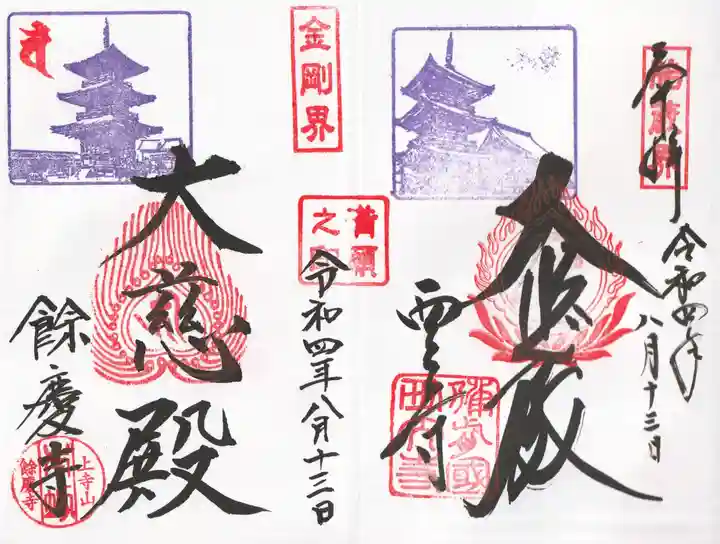 胎蔵界
奉拝
令和四年
八月十三日
大悲殿
西大寺
備前國
西大寺
金剛界
令和四年八月十三日
大慈殿
餘慶寺
上寺山
餘慶寺